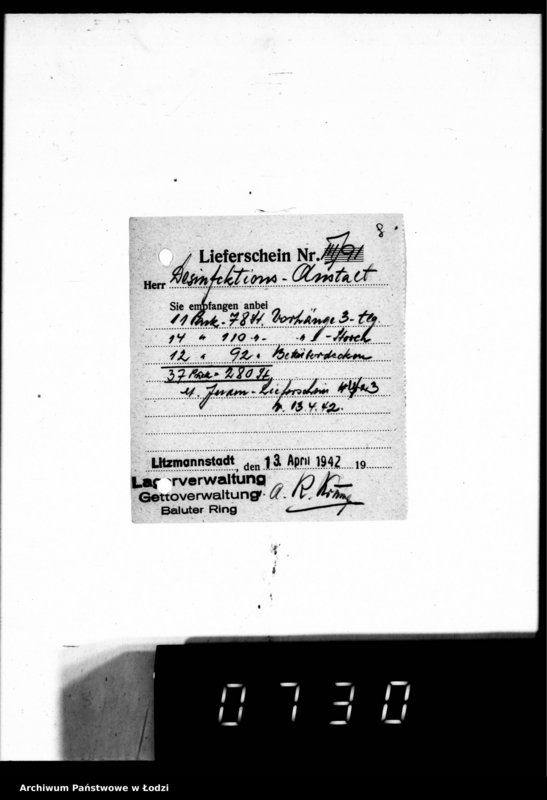 8.
Lieferschein Nr.
Herr Desinfektions-Anstalt
Sie empfangen anbei
11 Pack - 78 St. Vorhänge 3-tlg.
14 " 110 " " 1 - Stock
12 " 92 " Bettüberdecken
37 Pack - 280 St.
lt. Lieferschein
v. 13.4.42.
Litzmannstadt, den 13. April 1942 19
Lagerverwaltung
Gettoverwaltung
Baluter Ring
0730
Archiwum Państwowe w Łodzi